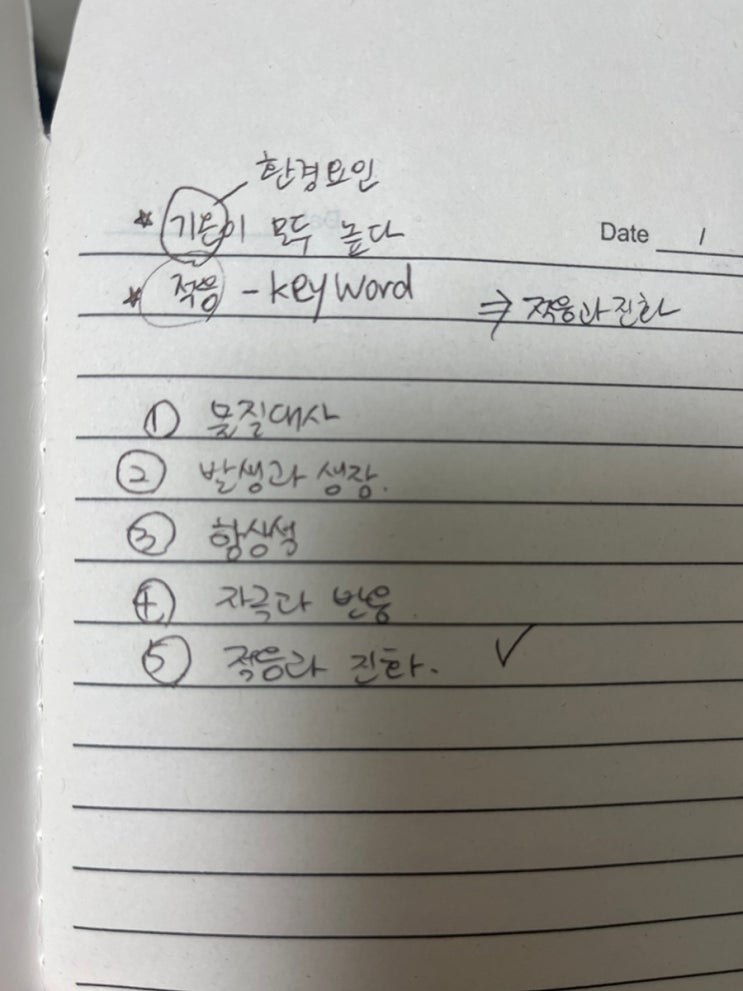 환경요인
* 기온이 모두 높다
Date 1
* 적응 - keyword ⇒ 적응과 진화
① 물질대사
② 발생과 생장.
③ 항상성
④ 자극과 반응.
⑤ 적응과 진화. ✓